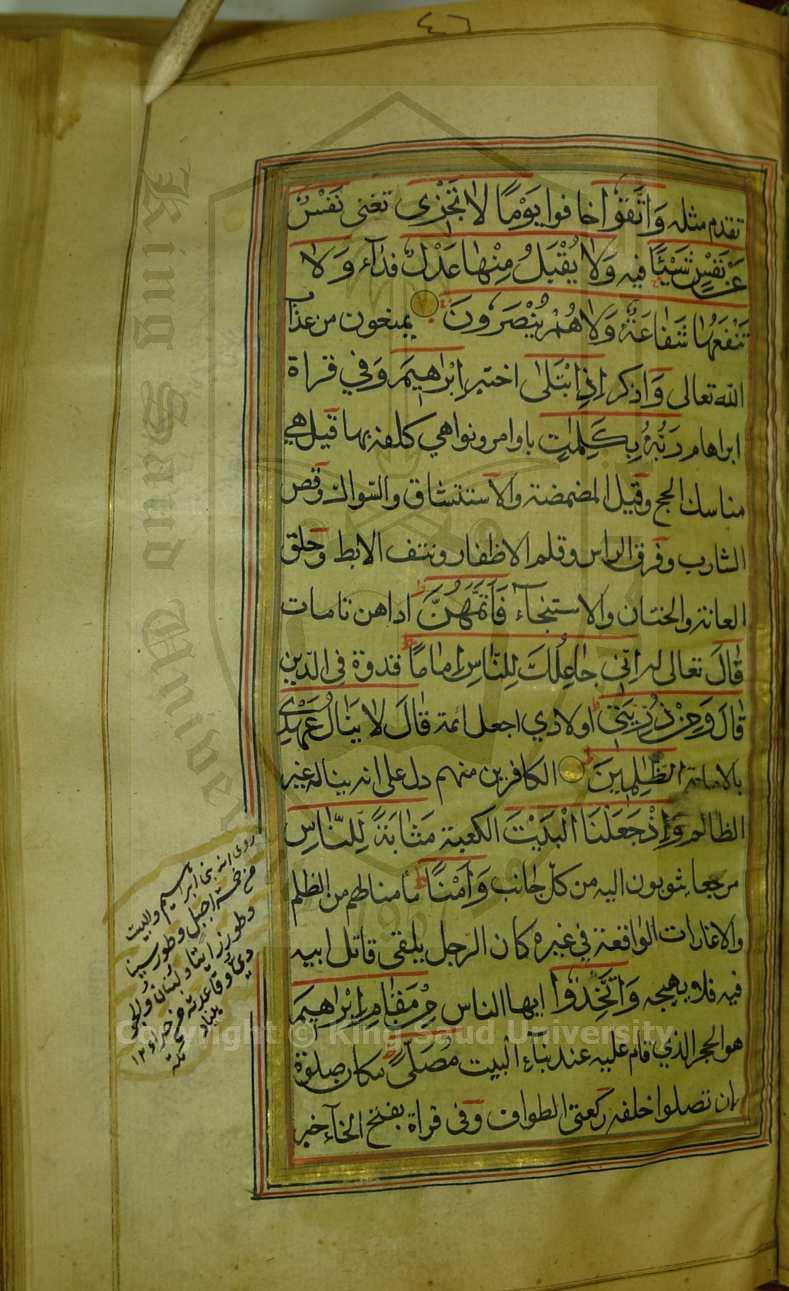 تقدم مثله وَاتَّقُوْا خافوا يَوْمًا لَا تَجْزِى تغنى نَفْسٌ
عَنْ نَفْسٍ شَيْئًا فيه وَلَا يُقْبَلُ مِنْهَا عَدْلٌ فداء وَلَا
تَنْفَعُهَا شَفَاعَةٌ وَلَا هُمْ يُنْصَرُونَ يمنعون من عذاب
الله تعالى وَاذكر اِذِ ابْتَلٰى اختبر اِبْرٰهِيْمَ وَفي قراة
ابراهام رَبُّهُ بِكَلِمٰتٍ باوامر ونواهي كلفه بها قيل هي
مناسك الحج وقيل المضمضة والاستنشاق والسّواك وقص
الشارب وفرق الراس وقلم الاظفار ونتف الابط وحلق
العانة والختان والاستنجاء فَاَتَمَّهُنَّ اداهن تامات
قَالَ تعالى له اِنّى جَاعِلُكَ لِلنَّاسِ اِمَامًا قدوة فى الدّين
قَالَ وَمِنْ ذُرِّيَّتِىْ اولادي اجعل ائمة قَالَ لَا يَنَالُ عَهْدِى
بالامامة الظّٰلِمِينَ الكافرين منهم دل على انه يناله غير
الظالم وَاِذْ جَعَلْنَا الْبَيْتَ الكعبة مَثَابَةً لِلنَّاسِ
مرجعا يثوبون اليه من كل جانب وَاَمْنًا مأمنا لهم من الظلم
والاغارات الواقعة في غيره كان الرّجل يلقى قاتل ابيه
فيه فلا يهيجه وَاتَّخِذُوْا ايها الناس مِنْ مَقَامِ اِبْرٰهِيمَ
هو الحجر الذي قام عليه عند بناء البيت مُصَلًّى مكان صلوة
بان تصلوا خلفه ركعتى الطواف وفى قراة بفتح الخاء خبر
روى انه بنى ابراهيم البيت
من خمسة اجبل وطور سينا
وطور زيتا ولبنان والجودي
Copyright © King Saud University
King Saud University